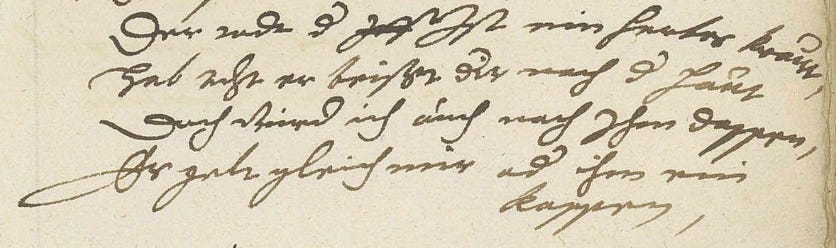 Der todt d Ist ein herbes kraut,
hab acht er beisst dir nach d haut
Doch wird ich auch nach Ihm dappen,
Es gelt gleich mir od ihm ein
kappen,